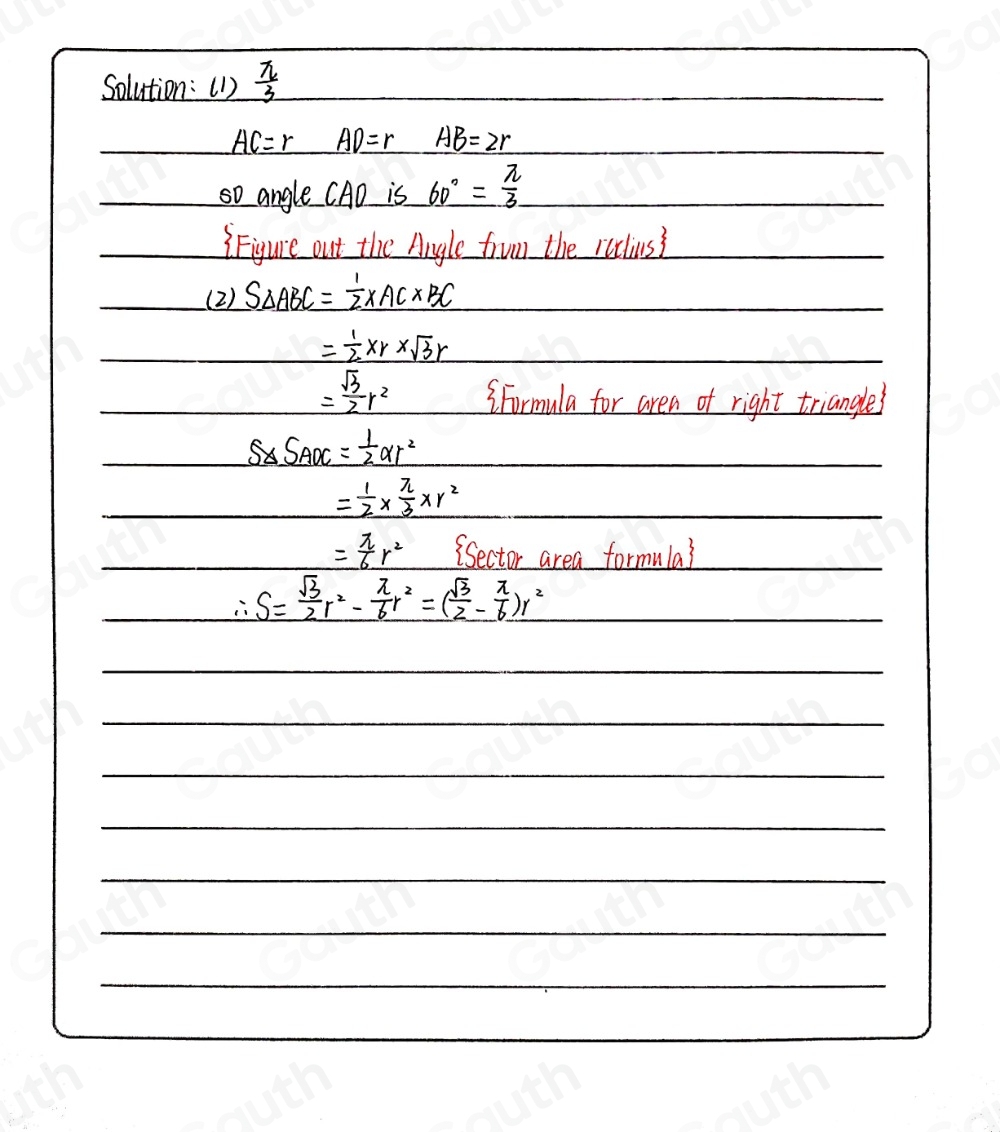 Solution: (1) π/3
AC=r AD=r AB=2r
so angle CAD is 60° = π/3
{Figure out the Angle from the radius}
(2) S△ABC = 1/2×AC×BC
= 1/2×r×√3r
= √3/2 r² {Formula for area of right triangle}
S△ SADC = 1/2αr²
= 1/2×π/3×r²
= π/6 r² {Sector area formula}
∴ S= √3/2 r² - π/6 r² = (√3/2 - π/6)r²
Gauth